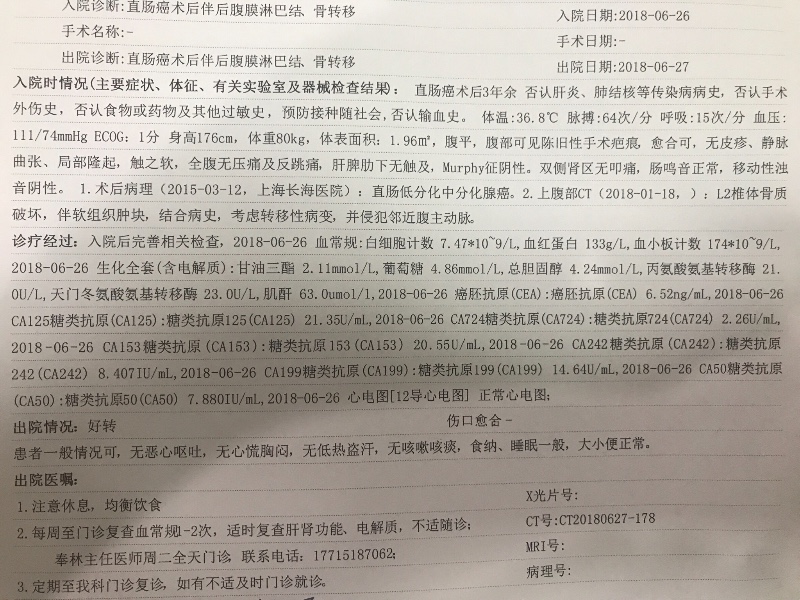 入院诊断:直肠癌术后伴后腹膜淋巴结、骨转移 入院日期:2018-06-26
手术名称:- 手术日期:-
出院诊断:直肠癌术后伴后腹膜淋巴结、骨转移 出院日期:2018-06-27
入院时情况(主要症状、体征、有关实验室及器械检查结果): 直肠癌术后3年余 否认肝炎、肺结核等传染病病史, 否认手术
外伤史, 否认食物或药物及其他过敏史, 预防接种随社会,否认输血史。 体温:36.8℃ 脉搏:64次/分 呼吸:15次/分 血压:
111/74mmHg ECOG: 1分 身高176cm, 体重80kg, 体表面积: 1.96㎡, 腹平, 腹部可见陈旧性手术疤痕, 愈合可, 无皮疹、静脉
曲张、局部隆起, 触之软, 全腹无压痛及反跳痛, 肝脾肋下无触及, Murphy征阴性。双侧肾区无叩痛, 肠鸣音正常, 移动性浊
音阴性。 1.术后病理 (2015-03-12, 上海长海医院) : 直肠低分化中分化腺癌。2.上腹部CT (2018-01-18, ) : L2椎体骨质
破坏, 伴软组织肿块, 结合病史, 考虑转移性病变, 并侵犯邻近腹主动脉。
诊疗经过: 入院后完善相关检查, 2018-06-26 血常规:白细胞计数 7.47*10^9/L,血红蛋白 133g/L,血小板计数 174*10^9/L,
2018-06-26 生化全套(含电解质):甘油三酯 2.11mmol/L,葡萄糖 4.86mmol/L,总胆固醇 4.24mmol/L,丙氨酸氨基转移酶 21.
0U/L,天门冬氨酸氨基转移酶 23.0U/L,肌酐 63.0umol/l,2018-06-26 癌胚抗原(CEA):癌胚抗原(CEA) 6.52ng/mL,2018-06-26
CA125糖类抗原(CA125):糖类抗原125(CA125) 21.35U/mL,2018-06-26 CA724糖类抗原(CA724):糖类抗原724(CA724) 2.26U/mL,
2018-06-26 CA153糖类抗原(CA153):糖类抗原153(CA153) 20.55U/mL,2018-06-26 CA242糖类抗原(CA242):糖类抗原
242(CA242) 8.407IU/mL,2018-06-26 CA199糖类抗原(CA199):糖类抗原199(CA199) 14.64U/mL,2018-06-26 CA50糖类抗原
(CA50):糖类抗原50(CA50) 7.880IU/mL,2018-06-26 心电图[12导心电图] 正常心电图;
出院情况: 好转 伤口愈合-
患者一般情况可, 无恶心呕吐, 无心慌胸闷, 无低热盗汗, 无咳嗽咳痰, 食纳、睡眠一般, 大小便正常。
出院医嘱:
1.注意休息, 均衡饮食 X光片号:
2.每周至门诊复查血常规1-2次, 适时复查肝肾功能、电解质, 不适随诊; CT号:CT20180627-178
奉林主任医师周二全天门诊, 联系电话: 17715187062; MRI号:
3.定期至我科门诊复诊, 如有不适及时门诊就诊。 病理号: